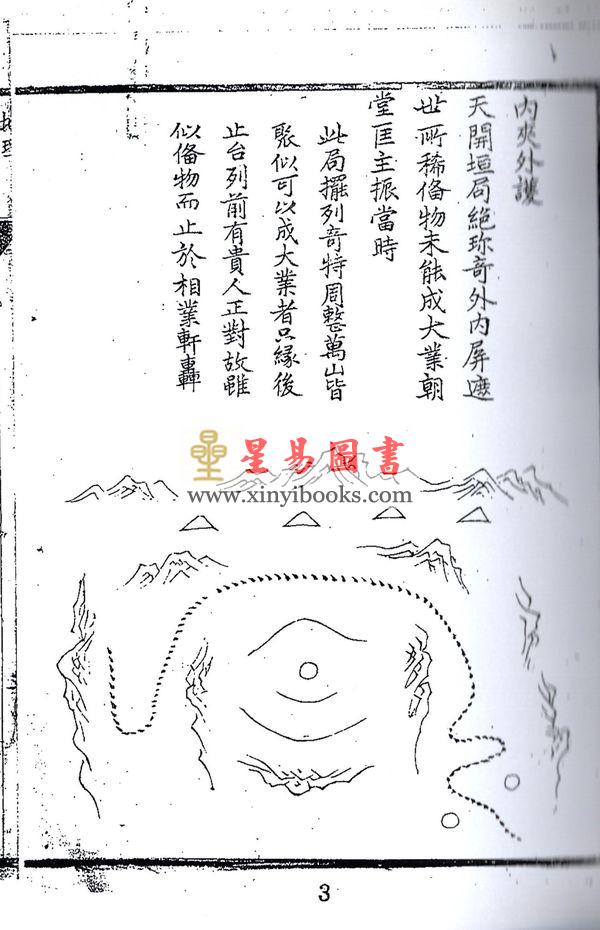 內夾外護
天開垣局絕珎奇外內屏遮
世所稀俻物未能成大業朝
堂匡主振當時
此局擺列奇特周整萬山皆
聚似可以成大業者只緣後
止台列前有貴人正對故雖
似俻物而止於相業軒轟
地理
星易圖書
www.xinyibooks.com
3